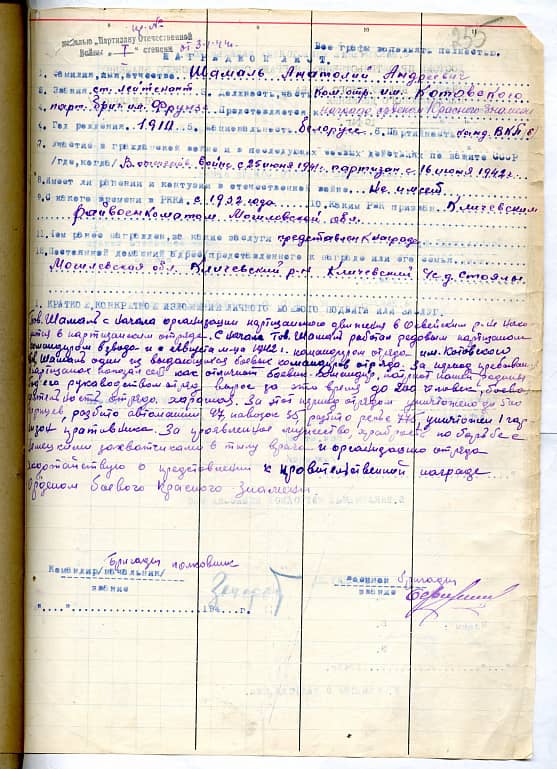 медалью „Партизану Отечественной
Войны „ I " степени
255
Все графы заполнять полностью.
НАГРАДНОЙ ЛИСТ.
1. Фамилия, имя, отчество Шамаль Анатолий Андреевич
2. Звание ст. лейтенант 3. Должность, часть Ком. отр. им. Котовского
парт. бриг. им. Фрунзе Представляется к награде орденом Красного Знамени
4. Год рождения 1910 5. национальность белорусс 6. Партийность канд. ВКП(б)
7. Участие в гражданской войне и в последующих боевых действиях по защите СССР
/где, когда/ В отечествен. войне с 25 июня 1941. партизан с 16 июня 1942 г.
8. Имеет ли ранения и контузии в отечественной войне Не имеет
9. С какого времени в РККА с 1932 года 10. Каким РВК призван Кличевским
Райвоенкоматом Могилевской обл.
11. Чем ранее награжден, за какие заслуги представлен к награде
12. Постоянный домашний адрес представленного к награде или его семьи
Могилевская обл. Кличевский р-н Кличевский с/с д. Стоялы
1. КРАТКОЕ, КОНКРЕТНОЕ ИЗЛОЖЕНИЕ ЛИЧНОГО БОЕВОГО ПОДВИГА ИЛИ ЗАСЛУГ.
Тов. Шамаль с начала организации партизанского движения в р-не
в партизанском отряде. С начала тов. Шамаль работал рядовым партизаном
командиром взвода и с августа м-ца 1942 г. командиром отряда им. Котовского
Шамаль один из выдающихся боевых командиров отряда. За период пребывания
партизаном показал себя как отличный боевик-командир, патриот нашей родины
под его руководством отряд вырос за это время до 200 человек, боевая
отряда хорошая. За этот период отрядом уничтожено до 500
разбито автомашин 47, повозок 55, разбито уничтожен 1
противника. За проявленное мужество храбрость по борьбе с
немецкими захватчиками в тылу врага и организацию отряда
ходатайствую о представлении к правительственной награде
орденом боевого Красного Знамени
Бригады полковник
Командир/начальник/
бригады
звание
звание
"....."................194....г.